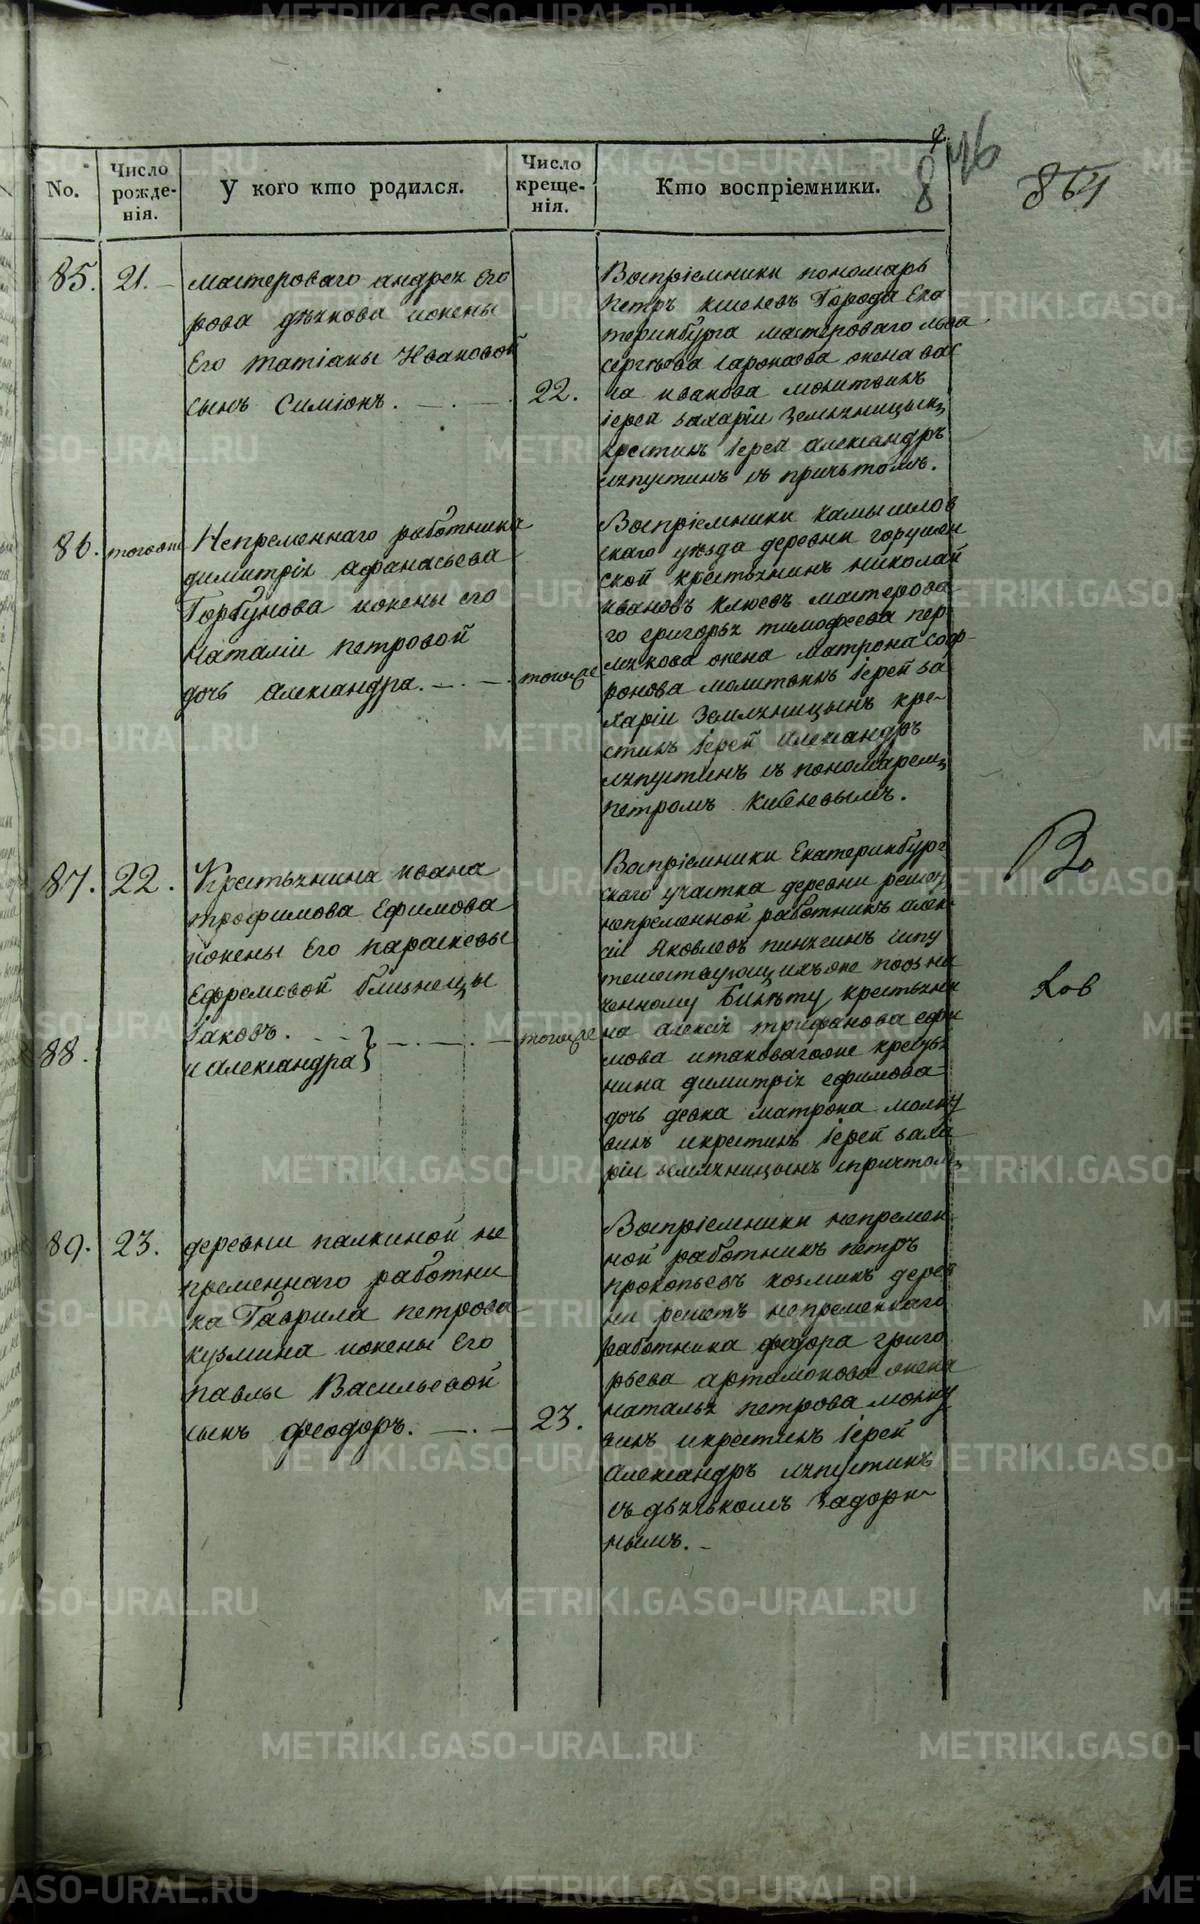 No.
Число рожде-нія.
У кого кто родился.
Число креще-нія.
Кто воспріемники.
8
46
864
85. 21. —
мастероваго андрея Его
рова дьячкова ижены
Его татіаны Ивановой
сынъ Симіонъ. — . —
22.
Воспріемники пономарь
петръ Города Ека
теринбурга мастероваго льва
сергѣева жена вас
са иванова молитвилъ
іерей захарій Земляницынъ
крестилъ іерей александръ
ляпустинъ съ причьтомъ.
86. тогоже
Непременнаго работника
димитрія афанасьева
Горбунова ижены его
наталіи петровой
дочь александра. — . — .
тогоже
Воспріемники камышлов
скаго уѣзда деревни
ской крестьянинъ николай
ивановъ клюевъ мастерова
го григорья тимофеева пер
мякова жена матрона соф-
ронова молитвилъ іерей за
харій Земляницынъ кре-
стилъ іерей александръ
ляпустинъ съ пономаремъ
петромъ
87. 22.
Крестьянина ивана
трофимова Ефимова
ижены Его параскевы
Ефремовой близнецы
Іаковъ. . — —
88.
и александра} — . — . —
тогоже
Воспріемники Екатеринбург
скаго участка деревни решет
непременной работникъ алек
сій Яковлевъ пинягинъ ипу
тешествующихъже поозна
ченному билѣту крестьяни
на алексія трифанова ефи
мова итаковагоже крестья
нина димитрія ефимова
дочь девка матрона молит
вилъ икрестилъ іерей заха
рій земляницынъ спричтомъ
Во
Ков
89. 23.
деревни палкиной не
пременнаго работни
ка Гаврила петрова
кузмина ижены Его
павлы Васильевой
сынъ феодоръ. — . —
23.
Воспріемники непремен
ной работникъ петръ
прокопьевъ козминъ дерев
ни решетъ непременнаго
работника федора григо
рьева артамонова жена
наталья петрова молит
вилъ икрестилъ іерей
александръ ляпустинъ
съ дьячькомъ Задори-
нымъ. —
METRIKI.GASO-URAL.RU